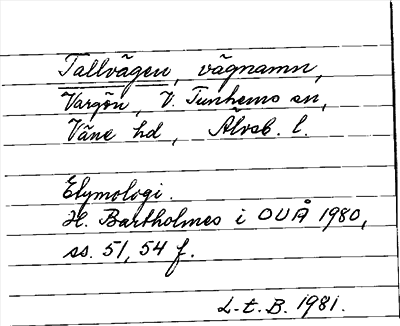 Tallvägen, vägnamn,
Vargön, V. Tunhems sn,
Väne hd, Älvsb. l.
Etymologi.
H. Bartholmes i OUÅ 1980,
ss. 51, 54 f.
L-E. B. 1981.